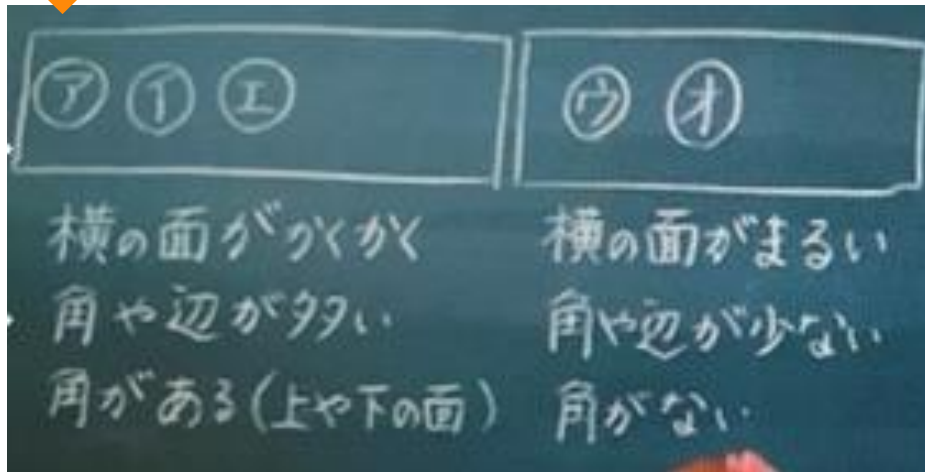 ア イ エ
横の面がかくかく
角や辺が多い
角がある(上や下の面)
ウ オ
横の面がまるい
角や辺が少ない
角がない